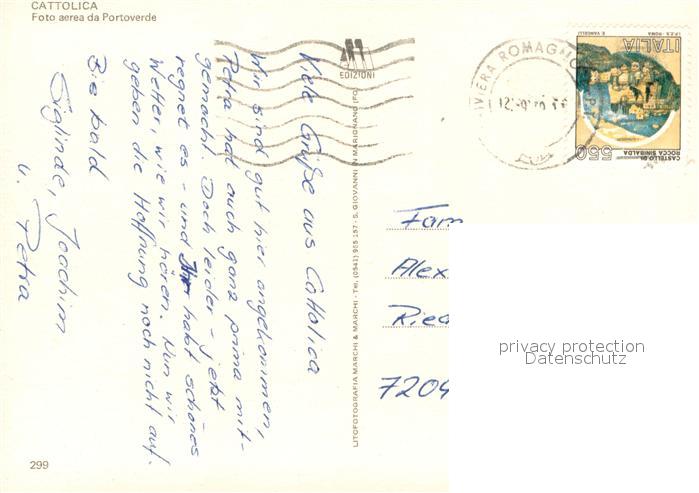 CATTOLICA
Foto aerea da Portoverde
Viele Grüße aus Cattolica
Wir sind gut hier angekommen,
Petra hat auch ganz prima mit-
gemacht. Doch leider - jetzt
regnet es - und Ihr habt schönes
Wetter, wie wir hören. Nun wir
geben die Hoffnung noch nicht auf.
Bis bald
Siglinde, Joachim
u. Petra
299
EDIZIONI
LITOFOTOGRAFIA MARCHI & MARCHI - Tel. (0541) 955 157 - S. GIOVANNI IN MARIGNANO (FO)
RIVIERA ROMAGNOLA
ITALIA
550
CASTELLO DI
ROCCA SINIBALDA
I.P.Z.S. - ROMA
E. VANGELLI
Fam
Alex
Ried
7204
privacy protection
Datenschutz